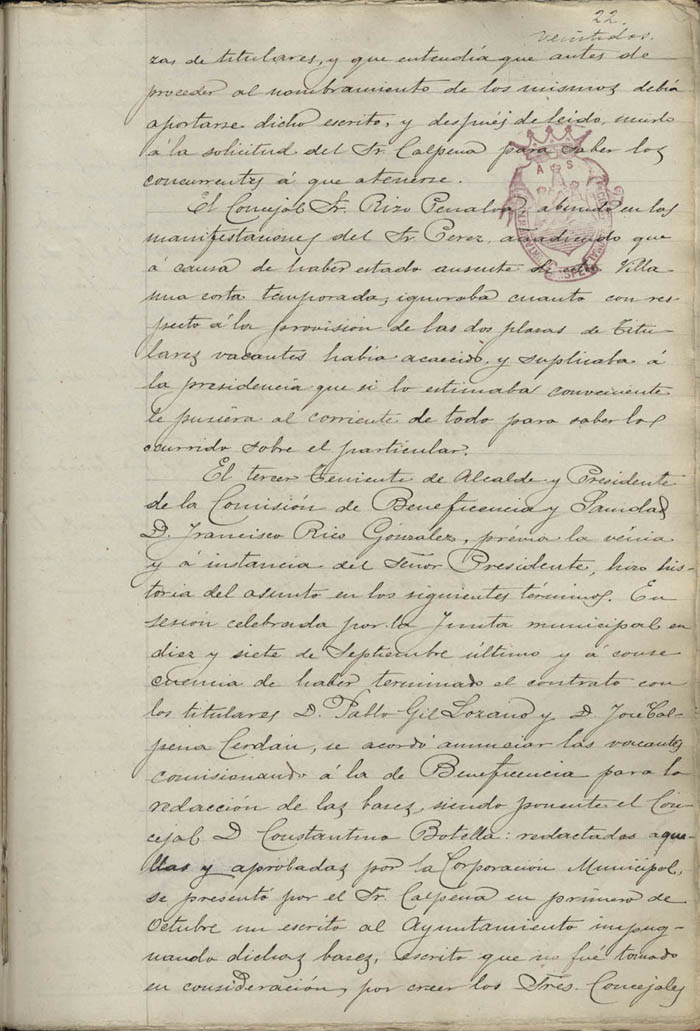 22.
Veintidos.
zas de titulares, y que entendía que antes de
proceder al nombramiento de los mismos debía
aportarse dicho escrito, y después de leido, unirlo
á la solicitud del Sr. Calpena para saber los
concurrentes á que atenerse.
El Concejal Sr. Rizo Penalva, abundó en las
manifestaciones del Sr. Perez, añadiendo que
á causa de haber estado ausente de esta Villa
una corta temporada, ignoraba cuanto con res-
pecto á la provisión de las dos plazas de Titu-
lares vacantes había acaecido, y suplicaba á
la presidencia que si lo estimaba conveniente
le pusiera al corriente de todo para saber lo
ocurrido sobre el particular.
El tercer Teniente de Alcalde y Presidente
de la Comisión de Beneficencia y Sanidad
D. Francisco Rico González, prévia la vénia
y á instancia del Señor Presidente, hizo his-
toria del asunto en los siguientes términos. En
sesión celebrada por la Junta municipal en
diez y siete de Septiembre último y á conse
cuencia de haber terminado el contrato con
los titulares D. Pablo Gil Lozano y D. José Cal-
pena Cerdán, se acordó anunciar las vacantes
comisionando á la de Beneficencia para la
redacción de las bases, siendo ponente el Con-
cejal D Constantino Botella: redactadas aque-
llas y aprobadas por la Corporación Municipal,
se presentó por el Sr. Calpena en primero de
Octubre un escrito al Ayuntamiento impug-
nando dichas bases, escrito que no fué tomado
en consideración, por creer los Sres. Concejales